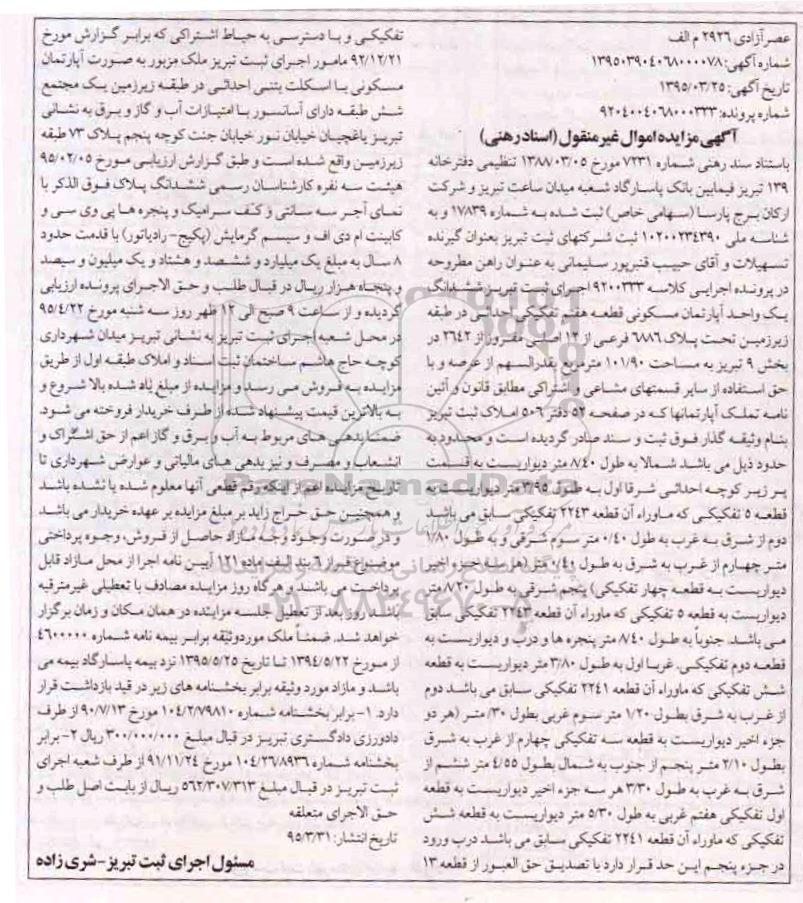 عصرآزادی ۲۹۲۶ م الف
شماره آگهی: ۱۳۹۵۰۳۹۰۴۰۶۸۰۰۰۰۷۸
تاریخ آگهی: ۱۳۹۵/۰۳/۲۵
شماره پرونده: ۹۲۰۴۰۰۴۰۶۸۰۰۰۳۳۳
آگهی مزایده اموال غیر منقول (اسناد رهنی)
باستناد سند رهنی شماره ۷۲۳۱ مورخ ۱۳۸۸/۰۳/۰۵ تنظیمی دفترخانه
۱۳۹ تبریز فیمابین بانک پاسارگاد شعبه میدان ساعت تبریز و شرکت
ارکان برج پارسا (سهامی خاص) ثبت شده به شماره ۱۷۸۳۹ و به
شناسه ملی ۱۰۲۰۰۲۳۴۳۹۰ ثبت شرکتهای ثبت تبریز بعنوان گیرنده
تسهیلات و آقای حبیب قنبرپور سلیمانی به عنوان راهن مطروحه
در پرونده اجرایی کلاسه ۹۲۰۰۳۳۳ اجرای ثبت تبریز ششدانگ
یک واحد آپارتمان مسکونی قطعه هفتم تفکیکی احداثی در طبقه
زیرزمین تحت پلاک ۶۸۸۶ فرعی از ۱۲ اصلی مفروز از ۲۶۴۲ در
بخش ۹ تبریز به مساحت ۱۰۱/۹۰ مترمربع بقدرالسهم از عرصه و با
حق استفاده از سایر قسمتهای مشاعی و اشتراکی مطابق قانون و آئین
نامه تملک آپارتمانها که در صفحه ۵۲ دفتر ۵۰۶ املاک ثبت تبریز
بنام وثیقه گذار فوق ثبت و سند صادر گردیده است و محدود به
حدود ذیل می باشد شمالا به طول ۸/۴۰ متر دیواریست به قسمت
پر زیر کوچه احداثی شرقا اول به طول ۳/۹۵ متر دیواریست به
قطعه ۵ تفکیکی که ماوراء آن قطعه ۲۲۴۳ تفکیکی سابق می باشد
دوم از شرق به غرب به طول ۰/۴۰ متر سوم شرقی و به طول ۱/۸۰
متر چهارم از غرب به شرق به طول ۰/۴۰ متر (هر سه جزء اخیر
دیواریست به قطعه چهار تفکیکی) پنجم شرقی به طول ۸/۲۰ متر
دیواریست به قطعه ۵ تفکیکی که ماوراء آن قطعه ۲۲۴۳ تفکیکی سابق
می باشد. جنوباً به طول ۸/۴۰ متر پنجره ها و درب و دیواریست به
قطعه دوم تفکیکی. غربا اول به طول ۳/۸۰ متر دیواریست به قطعه
شش تفکیکی که ماوراء آن قطعه ۲۲۴۱ تفکیکی سابق می باشد دوم
از غرب به شرق بطول ۱/۲۰ متر سوم غربی بطول ۳۰/ متر (هر دو
جزء اخیر دیواریست به قطعه سه تفکیکی چهارم از غرب به شرق
بطول ۲/۱۰ متر پنجم از جنوب به شمال بطول ۴/۵۵ متر ششم از
شرق به غرب به طول ۳/۳۰ هر سه جزء اخیر دیواریست به قطعه
اول تفکیکی هفتم غربی به طول ۵/۳۰ متر دیواریست به قطعه شش
تفکیکی که ماوراء آن قطعه ۲۲۴۱ تفکیکی سابق می باشد درب ورود
در جزء پنجم این حد قرار دارد با تصدیق حق العبور از قطعه ۱۳
تفکیکی و با دسترسی به حیاط اشتراکی که برابر گزارش مورخ
۹۲/۱۲/۲۱ مامور اجرای ثبت تبریز ملک مزبور به صورت آپارتمان
مسکونی با اسکلت بتنی احداثی در طبقه زیرزمین یک مجتمع
شش طبقه دارای آسانسور با امتیازات آب و گاز و برق به نشانی
تبریز باغچیان خیابان نور خیابان جنت کوچه پنجم پلاک ۷۳ طبقه
زیرزمین واقع شده است و طبق گزارش ارزیابی مورخ ۹۵/۰۲/۰۵
هیئت سه نفره کارشناسان رسمی ششدانگ پلاک فوق الذکر با
نمای آجر سه سانتی و کف سرامیک و پنجره ها پی وی سی و
کابینت ام دی اف و سیستم گرمایش (پکیج- رادیاتور) با قدمت حدود
۸ سال به مبلغ یک میلیارد و ششصد و هشتاد و یک میلیون و سیصد
و پنجاه هزار ریال در قبال طلب و حق الاجرای پرونده ارزیابی
گردیده و از ساعت ۹ صبح الی ۱۲ ظهر روز سه شنبه مورخ ۹۵/۴/۲۲
در محل شعبه اجرای ثبت تبریز به نشانی تبریز میدان شهرداری
کوچه حاج هاشم ساختمان ثبت اسناد و املاک طبقه اول از طریق
مزایده به فروش می رسد و مزایده از مبلغ یاد شده بالا شروع و
به بالاترین قیمت پیشنهاد شده از طرف خریدار فروخته می شود.
ضمنا بدهی های مربوط به آب و برق و گاز اعم از حق اشتراک و
انشعاب و مصرف و نیز بدهی های مالیاتی و عوارض شهرداری تا
تاریخ مزایده اعم از اینکه رقم قطعی آنها معلوم شده یا نشده باشد
و همچنین حق حراج زاید بر مبلغ مزایده بر عهده خریدار می باشد
و در صورت وجود وجه مازاد حاصل از فروش، وجوه پرداختی
موضوع قرار ۶ بند الف ماده ۱۲۱ آیین نامه اجرا از محل مازاد قابل
پرداخت می باشند و هرگاه روز مزایده مصادف با تعطیلی غیرمترقبه
باشد روز بعد از تعطیل جلسه مزایده در همان مکان و زمان برگزار
خواهد شد. ضمناً ملک مورد وثیقه برابر بیمه نامه شماره ۴۶۰۰۰۰۰
از مورخ ۱۳۹۴/۵/۲۲ تا تاریخ ۱۳۹۵/۵/۲۵ نزد بیمه پاسارگاد بیمه می
باشد و مازاد مورد وثیقه برابر بخشنامه های زیر در قید بازداشت قرار
دارد. ۱- برابر بخشنامه شماره ۱۰۴/۲/۷۹۸۱۰ مورخ ۹۰/۷/۱۳ از طرف
دادورزی دادگستری تبریز در قبال مبلغ ۳۰۰/۰۰۰/۰۰۰ ریال ۲- برابر
بخشنامه شماره ۱۰۴/۲۶/۸۹۳۶ مورخ ۹۱/۱۱/۲۴ از طرف شعبه اجرای
ثبت تبریز در قبال مبلغ ۵۶۲/۳۰۷/۳۱۳ ریال از بابت اصل طلب و
حق الاجرای متعلقه
تاریخ انتشار: ۹۵/۳/۳۱
مسئول اجرای ثبت تبریز- شری زاده
ParsNamadData